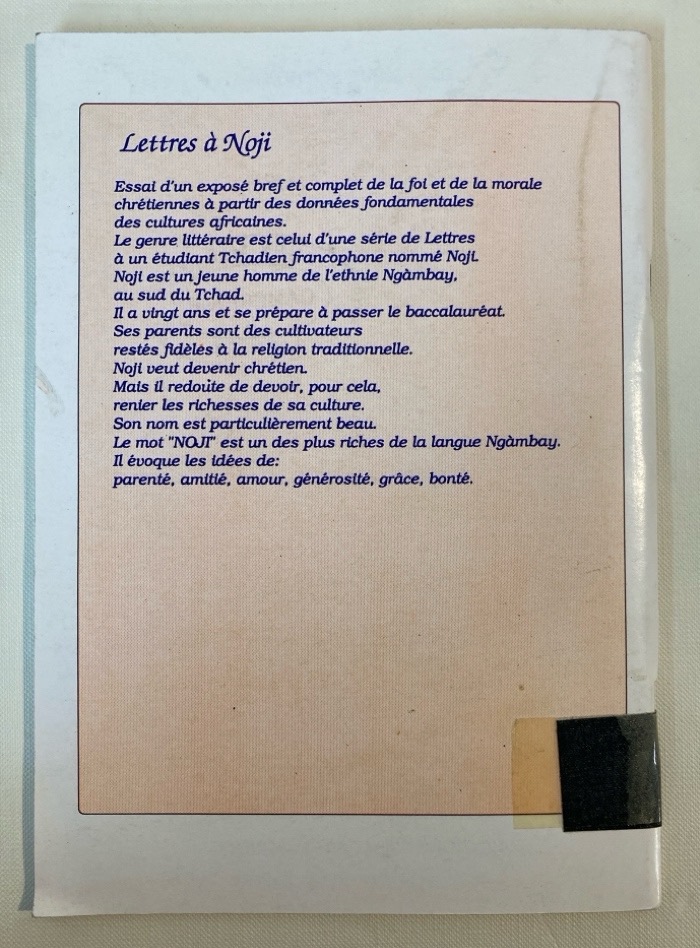 Lettres à Noji
Essai d'un exposé bref et complet de la foi et de la morale
chrétiennes à partir des données fondamentales
des cultures africaines.
Le genre littéraire est celui d'une série de Lettres
à un étudiant Tchadien francophone nommé Noji.
Noji est un jeune homme de l'ethnie Ngàmbay,
au sud du Tchad.
Il a vingt ans et se prépare à passer le baccalauréat.
Ses parents sont des cultivateurs
restés fidèles à la religion traditionnelle.
Noji veut devenir chrétien.
Mais il redoute de devoir, pour cela,
renier les richesses de sa culture.
Son nom est particulièrement beau.
Le mot "NOJI" est un des plus riches de la langue Ngàmbay.
Il évoque les idées de:
parenté, amitié, amour, générosité, grâce, bonté.